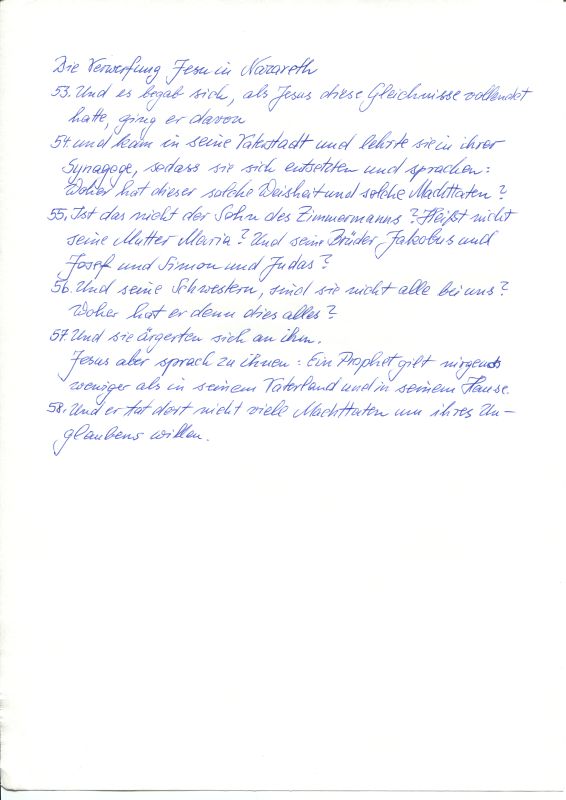 Die Verwerfung Jesu in Nazareth
53. Und es begab sich, als Jesus diese Gleichnisse vollendet
hatte, ging er davon
54. und kam in seine Vaterstadt und lehrte sie in ihrer
Synagoge, sodass sie sich entsetzten und sprachen:
Woher hat dieser solche Weisheit und solche Machttaten?
55. Ist das nicht der Sohn des Zimmermanns? Heißt nicht
seine Mutter Maria? Und seine Brüder Jakobus und
Josef und Simon und Judas?
56. Und seine Schwestern, sind sie nicht alle bei uns?
Woher hat er denn dies alles?
57. Und sie ärgerten sich an ihm.
Jesus aber sprach zu ihnen: Ein Prophet gilt nirgends
weniger als in seinem Vaterland und in seinem Hause.
58. Und er tat dort nicht viele Machttaten um ihres Un-
glaubens willen.